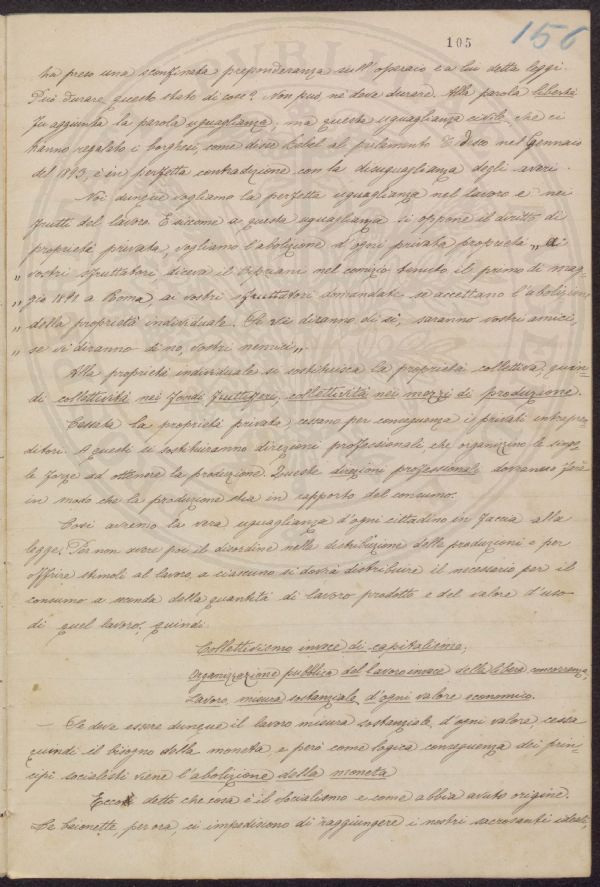 105 156
ha preso una sconfinata preponderanza sull'operaio e a lui detta leggi.
Può durare questo stato di cose? Non può, nè deve durare. Alla parola libertà
fu aggiunta la parola uguaglianza; ma questa uguaglianza civile, che ci
hanno regalato i borghesi, come disse Bebel al parlamento di nel Gennaio
del 1893, è in perfetta contradizione con la disuguaglianza degli averi.
Noi dunque vogliamo la perfetta uguaglianza nel lavoro e nei
frutti del lavoro. E siccome a questa uguaglianza si oppone il diritto di
proprietà privata, vogliamo l'abolizione d'ogni privata proprietà „ Ai
„ vostri sfruttatori, diceva il Cipriani nel comizio tenuto il primo di mag-
„ gio 1891 a Roma, ai vostri sfruttatori domandate se accettano l'abolizione
„ della proprietà individuale. Se vi diranno di sì, saranno vostri amici,
„ se vi diranno di no, vostri nemici „
Alla proprietà individuale si sostituisca la proprietà collettiva, quin-
di collettività nei fondi fruttiferi, collettività nei mezzi di produzione.
Cessata la proprietà privata, cessano per conseguenza i privati intrapren-
ditori. A questi si sostituiranno direzioni professionali, che organizzino le singo-
le forze ad ottenere la produzione. Queste direzioni professionali dovranno fare
in modo che la produzione stia in rapporto del consumo.
Così avremo la vera uguaglianza d'ogni cittadino in faccia alla
legge. Per non avere poi il disordine nella distribuzione delle produzioni e per
offrire stimoli al lavoro, a ciascuno si dovrà distribuire il necessario per il
consumo a seconda della quantità di lavoro prodotto e del valore d'uso
di quel lavoro, quindi:
Collettivismo invece di capitalismo;
Organizzazione pubblica del lavoro invece della libera concorrenza;
Lavoro, misura sostanziale d'ogni valore economico.
— Se deve essere dunque il lavoro misura sostanziale d'ogni valore, cessa
quindi il bisogno della moneta e però come logica conseguenza dei prin-
cipî socialisti viene l'abolizione della moneta
Ecco detto che cosa è il Socialismo e come abbia avuto origine.
Le baionette, per ora, ci impediscono di raggiungere i nostri sacrosanti ideali,